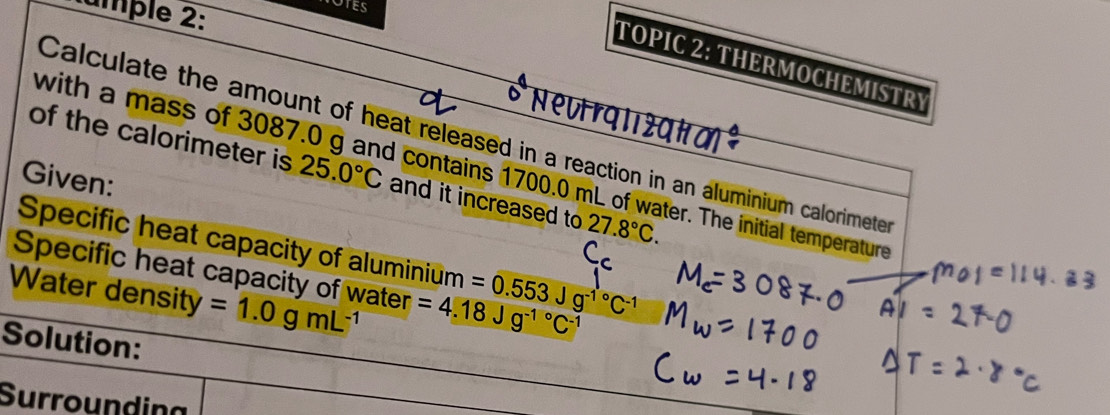 OTES
mple 2:
TOPIC 2: THERMOCHEMISTRY
q
Neutralization
Calculate the amount of heat released in a reaction in an aluminium calorimeter
with a mass of 3087.0 g and contains 1700.0 mL of water. The initial temperature
of the calorimeter is 25.0°C and it increased to 27.8°C.
Given:
Specific heat capacity of aluminium = 0.553 J g⁻¹ °C⁻¹
Specific heat capacity of water = 4.18 J g⁻¹ °C⁻¹
Water density = 1.0 g mL⁻¹
Cc
Mc = 3087.0
mol = 114.33
Al = 27.0
Mw = 1700
ΔT = 2.8 °C
Cw = 4.18
Solution:
Surrounding